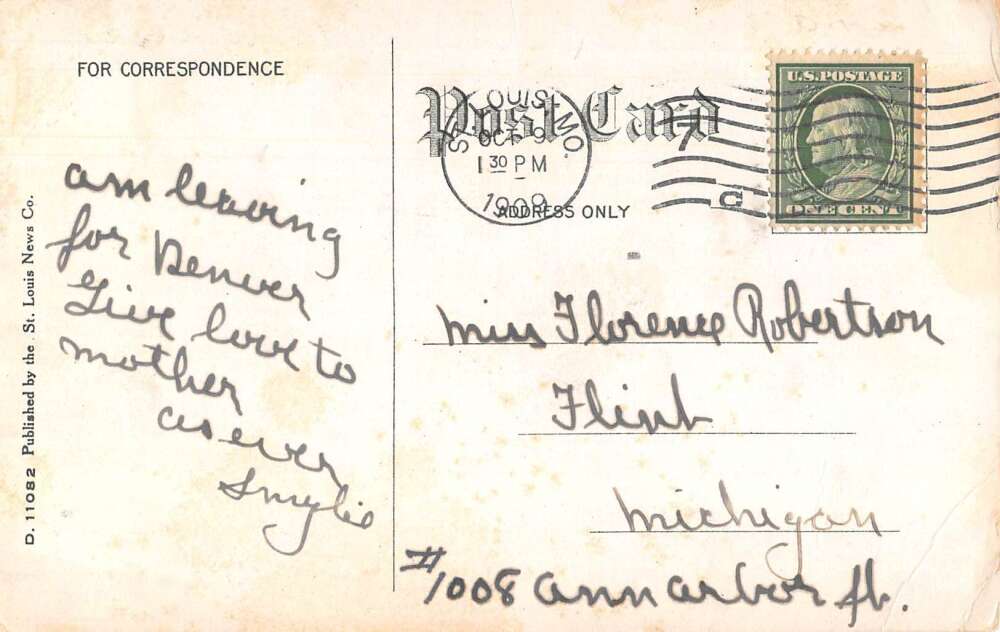 FOR CORRESPONDENCE
am leaving
for Denver
Give love to
mother
as ever
Smylie
D. 11082 Published by the St. Louis News Co.
Post Card
ST. LOUIS, MO.
OCT 9
1 30 PM
1909
ADDRESS ONLY
U.S. POSTAGE
ONE CENT
C
Miss Florence Robertson
Flint
Michigan
#1008 Ann Arbor St.